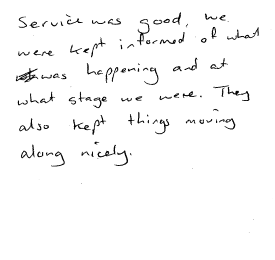 Service was good, we
were kept informed of what
was happening and at
what stage we were. They
also kept things moving
along nicely.